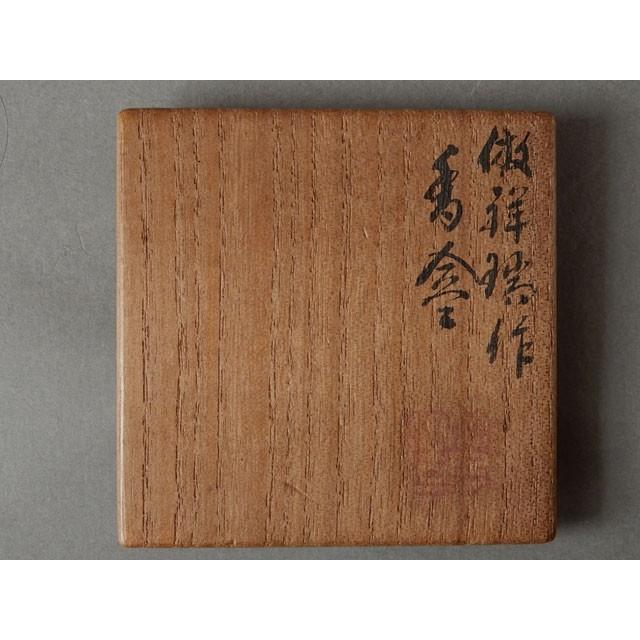 倣祥瑞作
香合